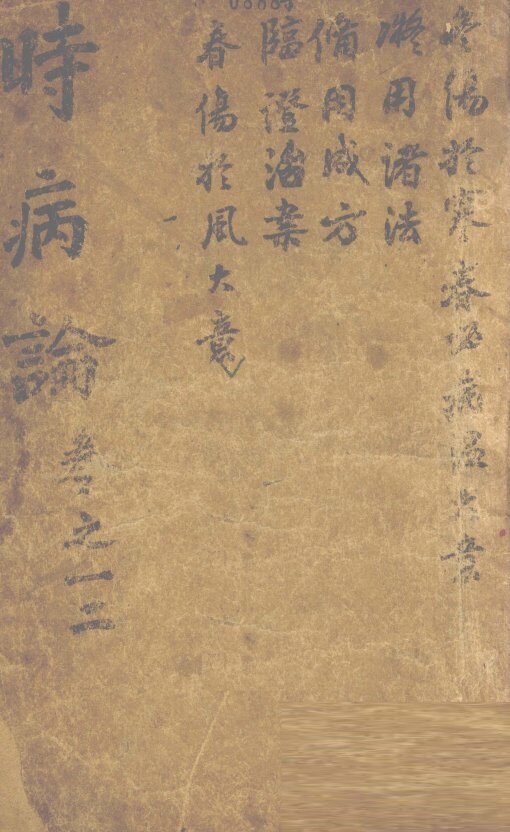 冬傷於寒春必病温大意
擬用諸法
備用成方
臨證治案
春傷於風大意
時病論
卷之一二